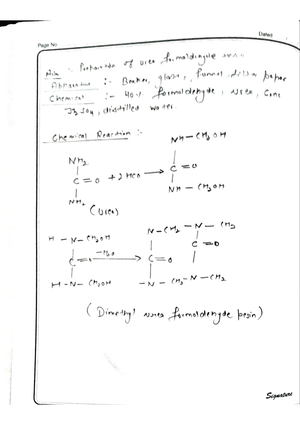 Page No
Dated
Aim :- Preparation of urea formaldehyde resin
Apparatus :- Beaker, glass, Funnel, filter paper
Chemical :- 40% formaldehyde, urea, Conc
H2SO4, distilled water.
Chemical Reaction :-
NH-CH2OH
NH2
C=O + 2HCHO → C=O
NH2 NH-CH2OH
(Urea)
H-N-CH2OH N-CH2-N-CH2
C=O -H2O → C=O C=O
H-N-CH2OH -N-CH2-N-CH2
(Dimethyl urea formaldehyde resin)
Signature